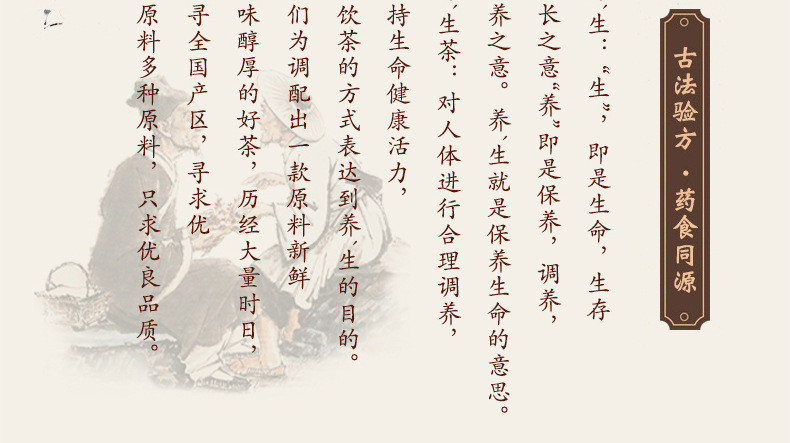 古法验方·药食同源
生：“生”，即是生命，生存
长之意“养”即是保养，调养，
养之意。养ˊ生就是保养生命的意思。
ˊ生茶：对人体进行合理调养，
持生命健康活力，
饮茶的方式表达到养ˊ生的目的。
们为调配出一款原料新鲜
味醇厚的好茶，历经大量时日，
寻全国产区，寻求优
原料多种原料，只求优良品质。